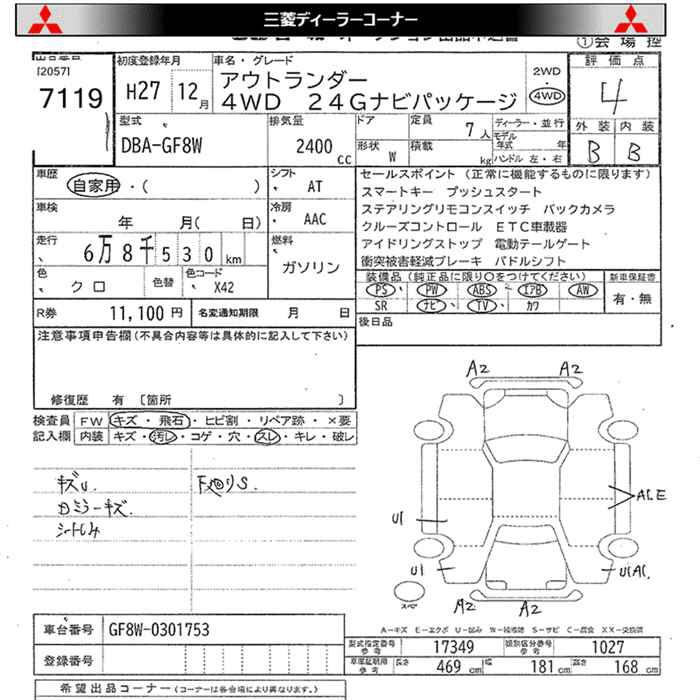 三菱ディーラーコーナー
①会場控
[2057]
7119
初度登録年月
H27 12月
車名・グレード
アウトランダー
4WD 24Gナビパッケージ
2WD
・
4WD
評価点
4
外装 内装
B B
型式
DBA-GF8W
排気量
2400 cc
ドア
形状 W
定員 7人
積載 kg
ディーラー・並行
モデル年式 年
ハンドル 左・右
車歴
自家用・( )
シフト
AT
車検
年 月( 日)
冷房
AAC
走行
6万8千530km
燃料
ガソリン
色
クロ
色替
色コード
X42
R券 11,100円 名変通知期限 月 日
セールスポイント (正常に機能するものに限ります)
スマートキー プッシュスタート
ステアリングリモコンスイッチ バックカメラ
クルーズコントロール ETC車載器
アイドリングストップ 電動テールゲート
衝突被害軽減ブレーキ パドルシフト
装備品(純正品に限り○をつけてください)
PS PW ABS エアB AW
SR ナビ TV カワ
新車保証書
有・無
後日品
注意事項申告欄(不具合内容等は具体的に記入して下さい)
修復歴 有 [箇所 ]
検査員 FW キズ・飛石・ヒビ割・リペア跡・×要
記入欄 内装 キズ・汚レ・コゲ・穴・スレ・キレ・破レ
キズU 下廻りS.
ミラーキズ
シートしみ
A2 A2
U1
A1E
U1
U1A1
スペア
A2 A2
A-キズ E-エクボ U-凹み W-補修跡 S-サビ C-腐食 XX-交換済
車台番号 GF8W-0301753
登録番号
型式指定番号 参考 17349 類別区分番号 参考 1027
車庫証明用 参考 長さ 469cm 幅 181cm 高さ 168cm
希望出品コーナー(コーナーは各会場により異なります。)